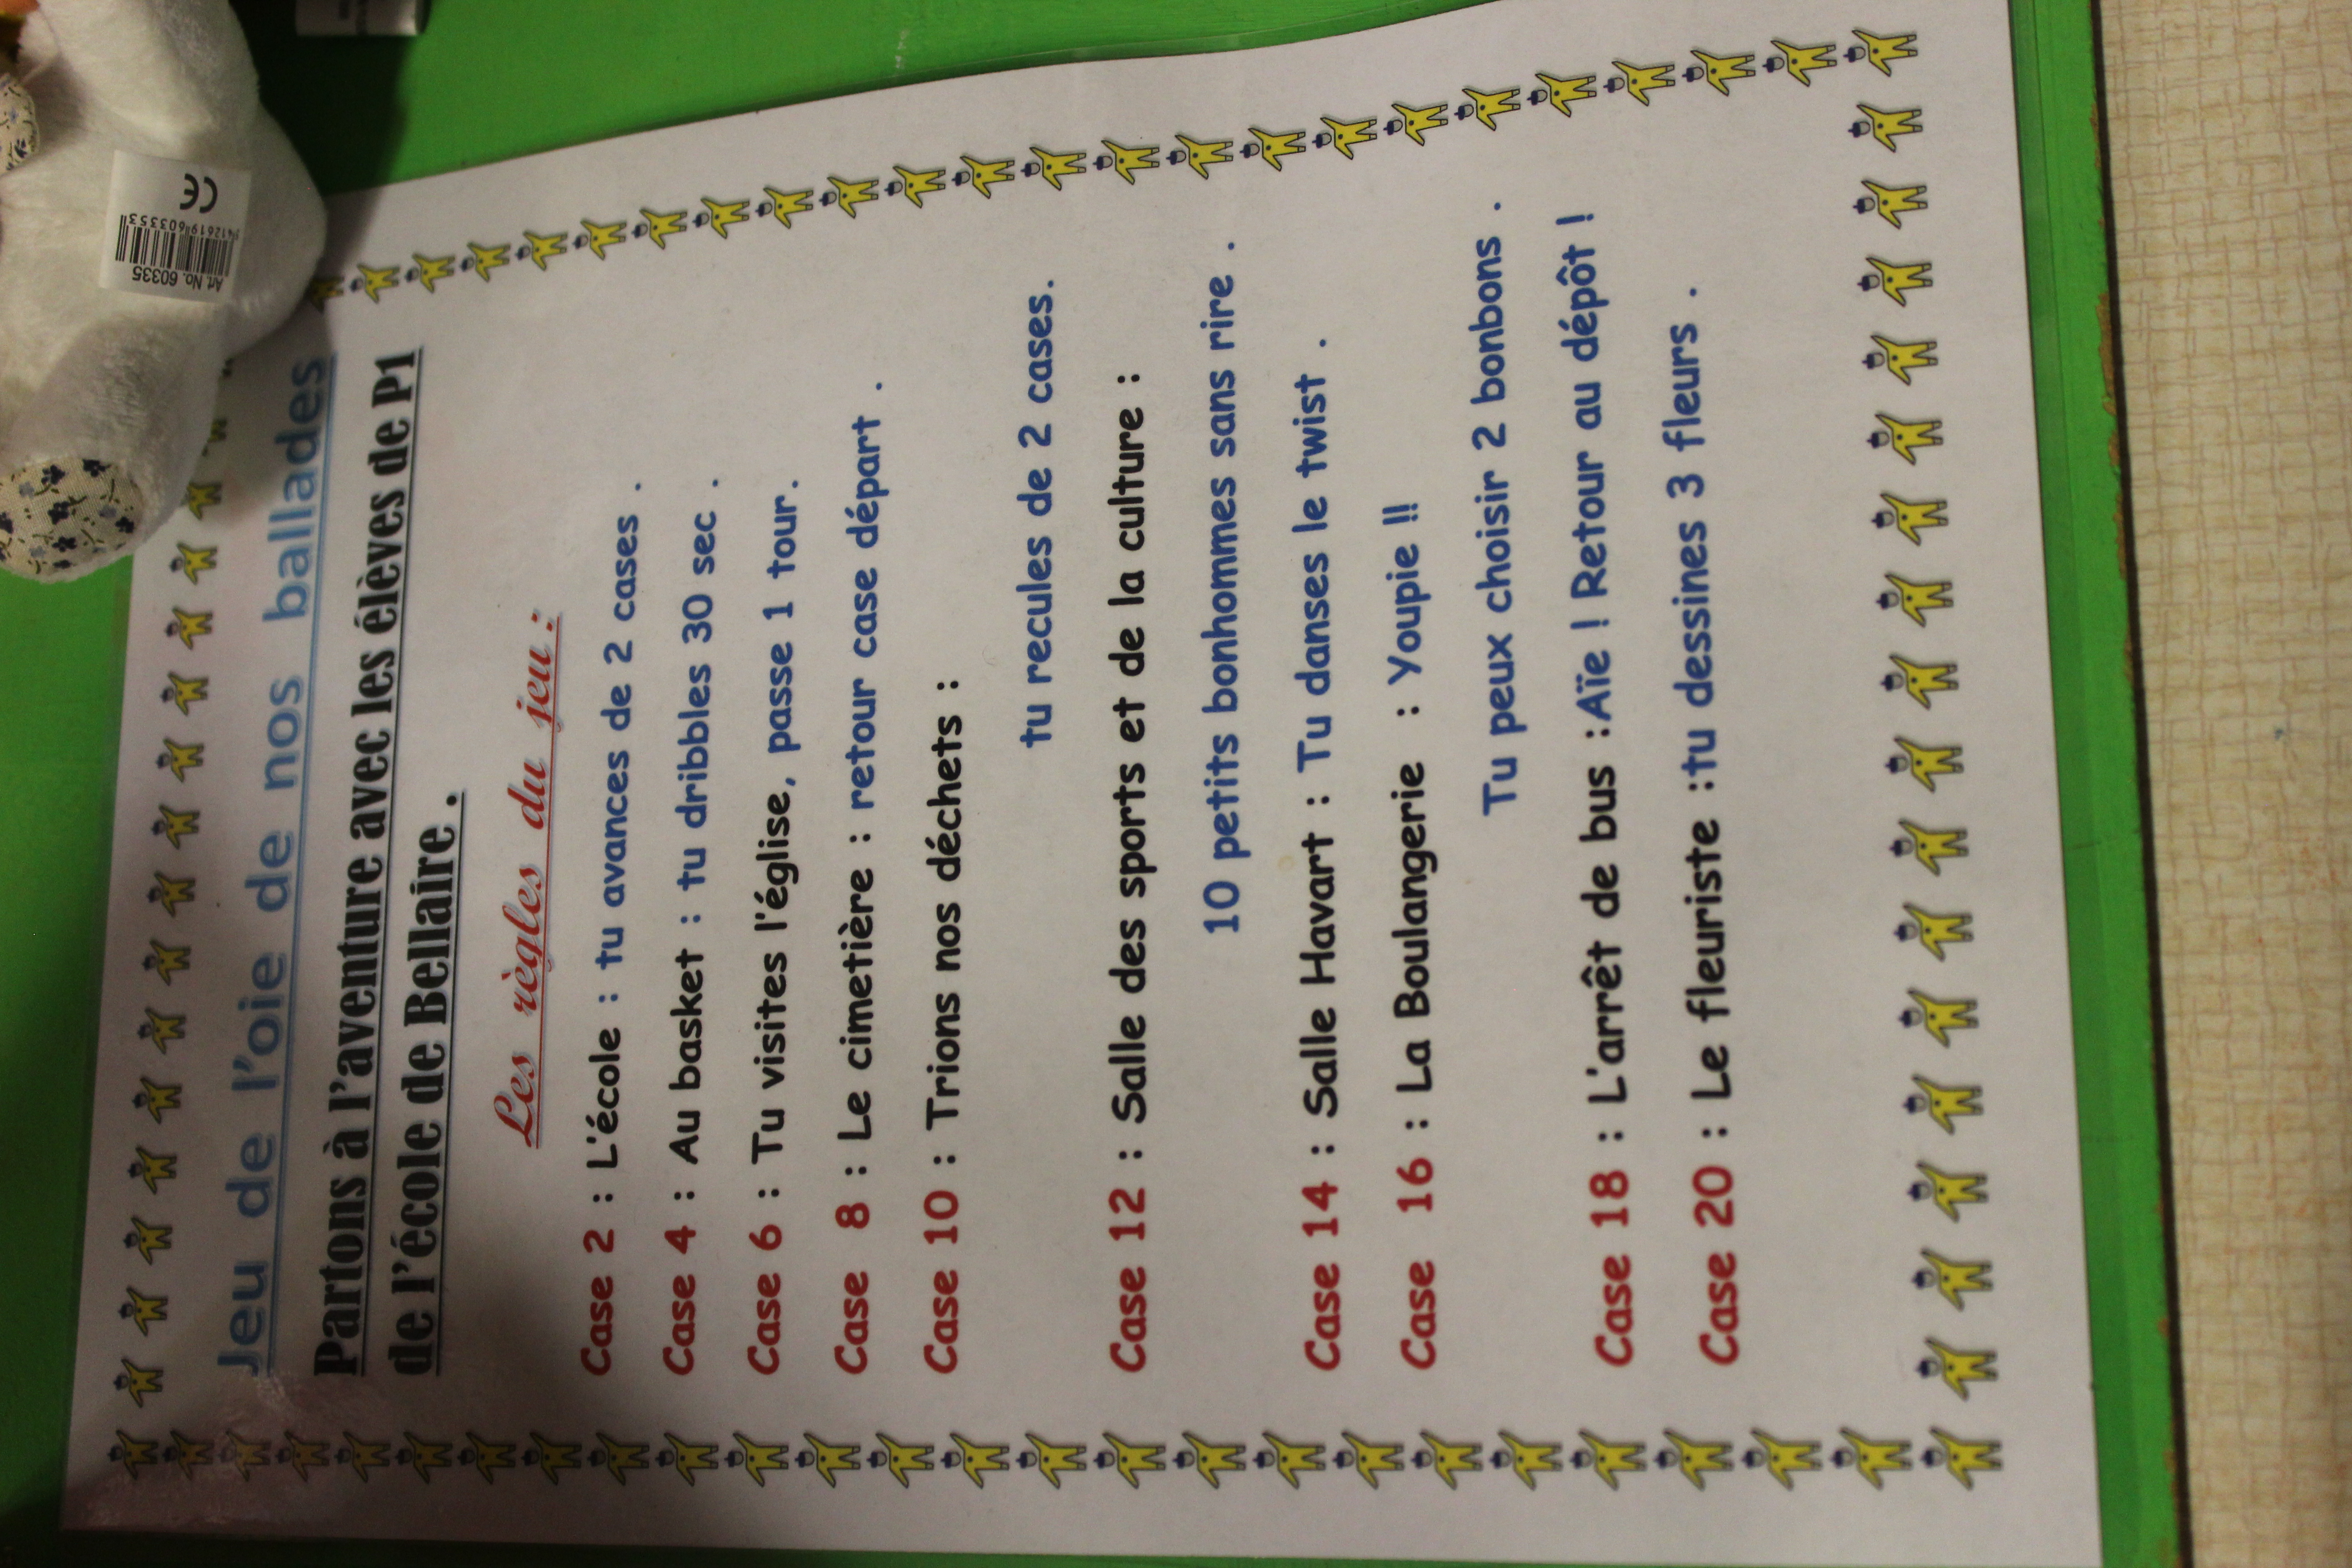 Jeu de l'oie de nos ballades
Partons à l'aventure avec les élèves de P1
de l'école de Bellaire .
Les règles du jeu :
Case 2 : L'école : tu avances de 2 cases .
Case 4 : Au basket : tu dribbles 30 sec .
Case 6 : Tu visites l'église, passe 1 tour.
Case 8 : Le cimetière : retour case départ .
Case 10 : Trions nos déchets :
tu recules de 2 cases.
Case 12 : Salle des sports et de la culture :
10 petits bonhommes sans rire .
Case 14 : Salle Havart : Tu danses le twist .
Case 16 : La Boulangerie : Youpie !!
Tu peux choisir 2 bonbons .
Case 18 : L'arrêt de bus :Aïe ! Retour au dépôt !
Case 20 : Le fleuriste :tu dessines 3 fleurs .
Art. No. 60335
CE